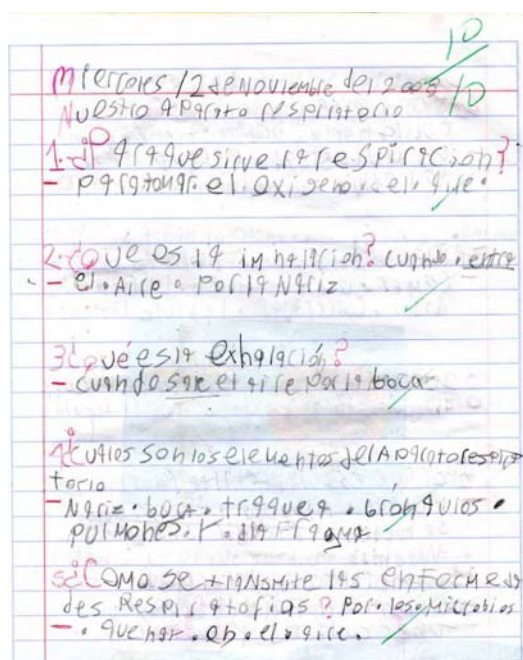 10
/10
Miercoles 12 de Noviembre del 2008
Nuestro aparato respiratorio
1.¿Para que sirve la respiracion?
- para tomar.el.oxigeno.del.aire.
2.¿que es la inhalacion? cuando.entra
- el.Aire.Por la Nariz
3¿qué es la exhalación?
- cuando sale el aire por la boca
4¿cuales son los elementos del Aparato respira
torio
- Nariz.boca.traquea.brónquios.
pulmones.Y.diafragma
5¿Como se transmite las enfermeda
des Respiratorias? Por.los.Microbios
- .que hay.en.el.aire.